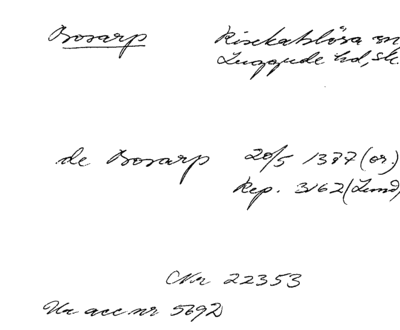 Bosarp Risekatslösa sn
Luggude hd, Sk.
de Bosarp 20/5 1377 (or.)
Rep. 3162 (Lund,
Nr 22353
Ur acc nr 5692